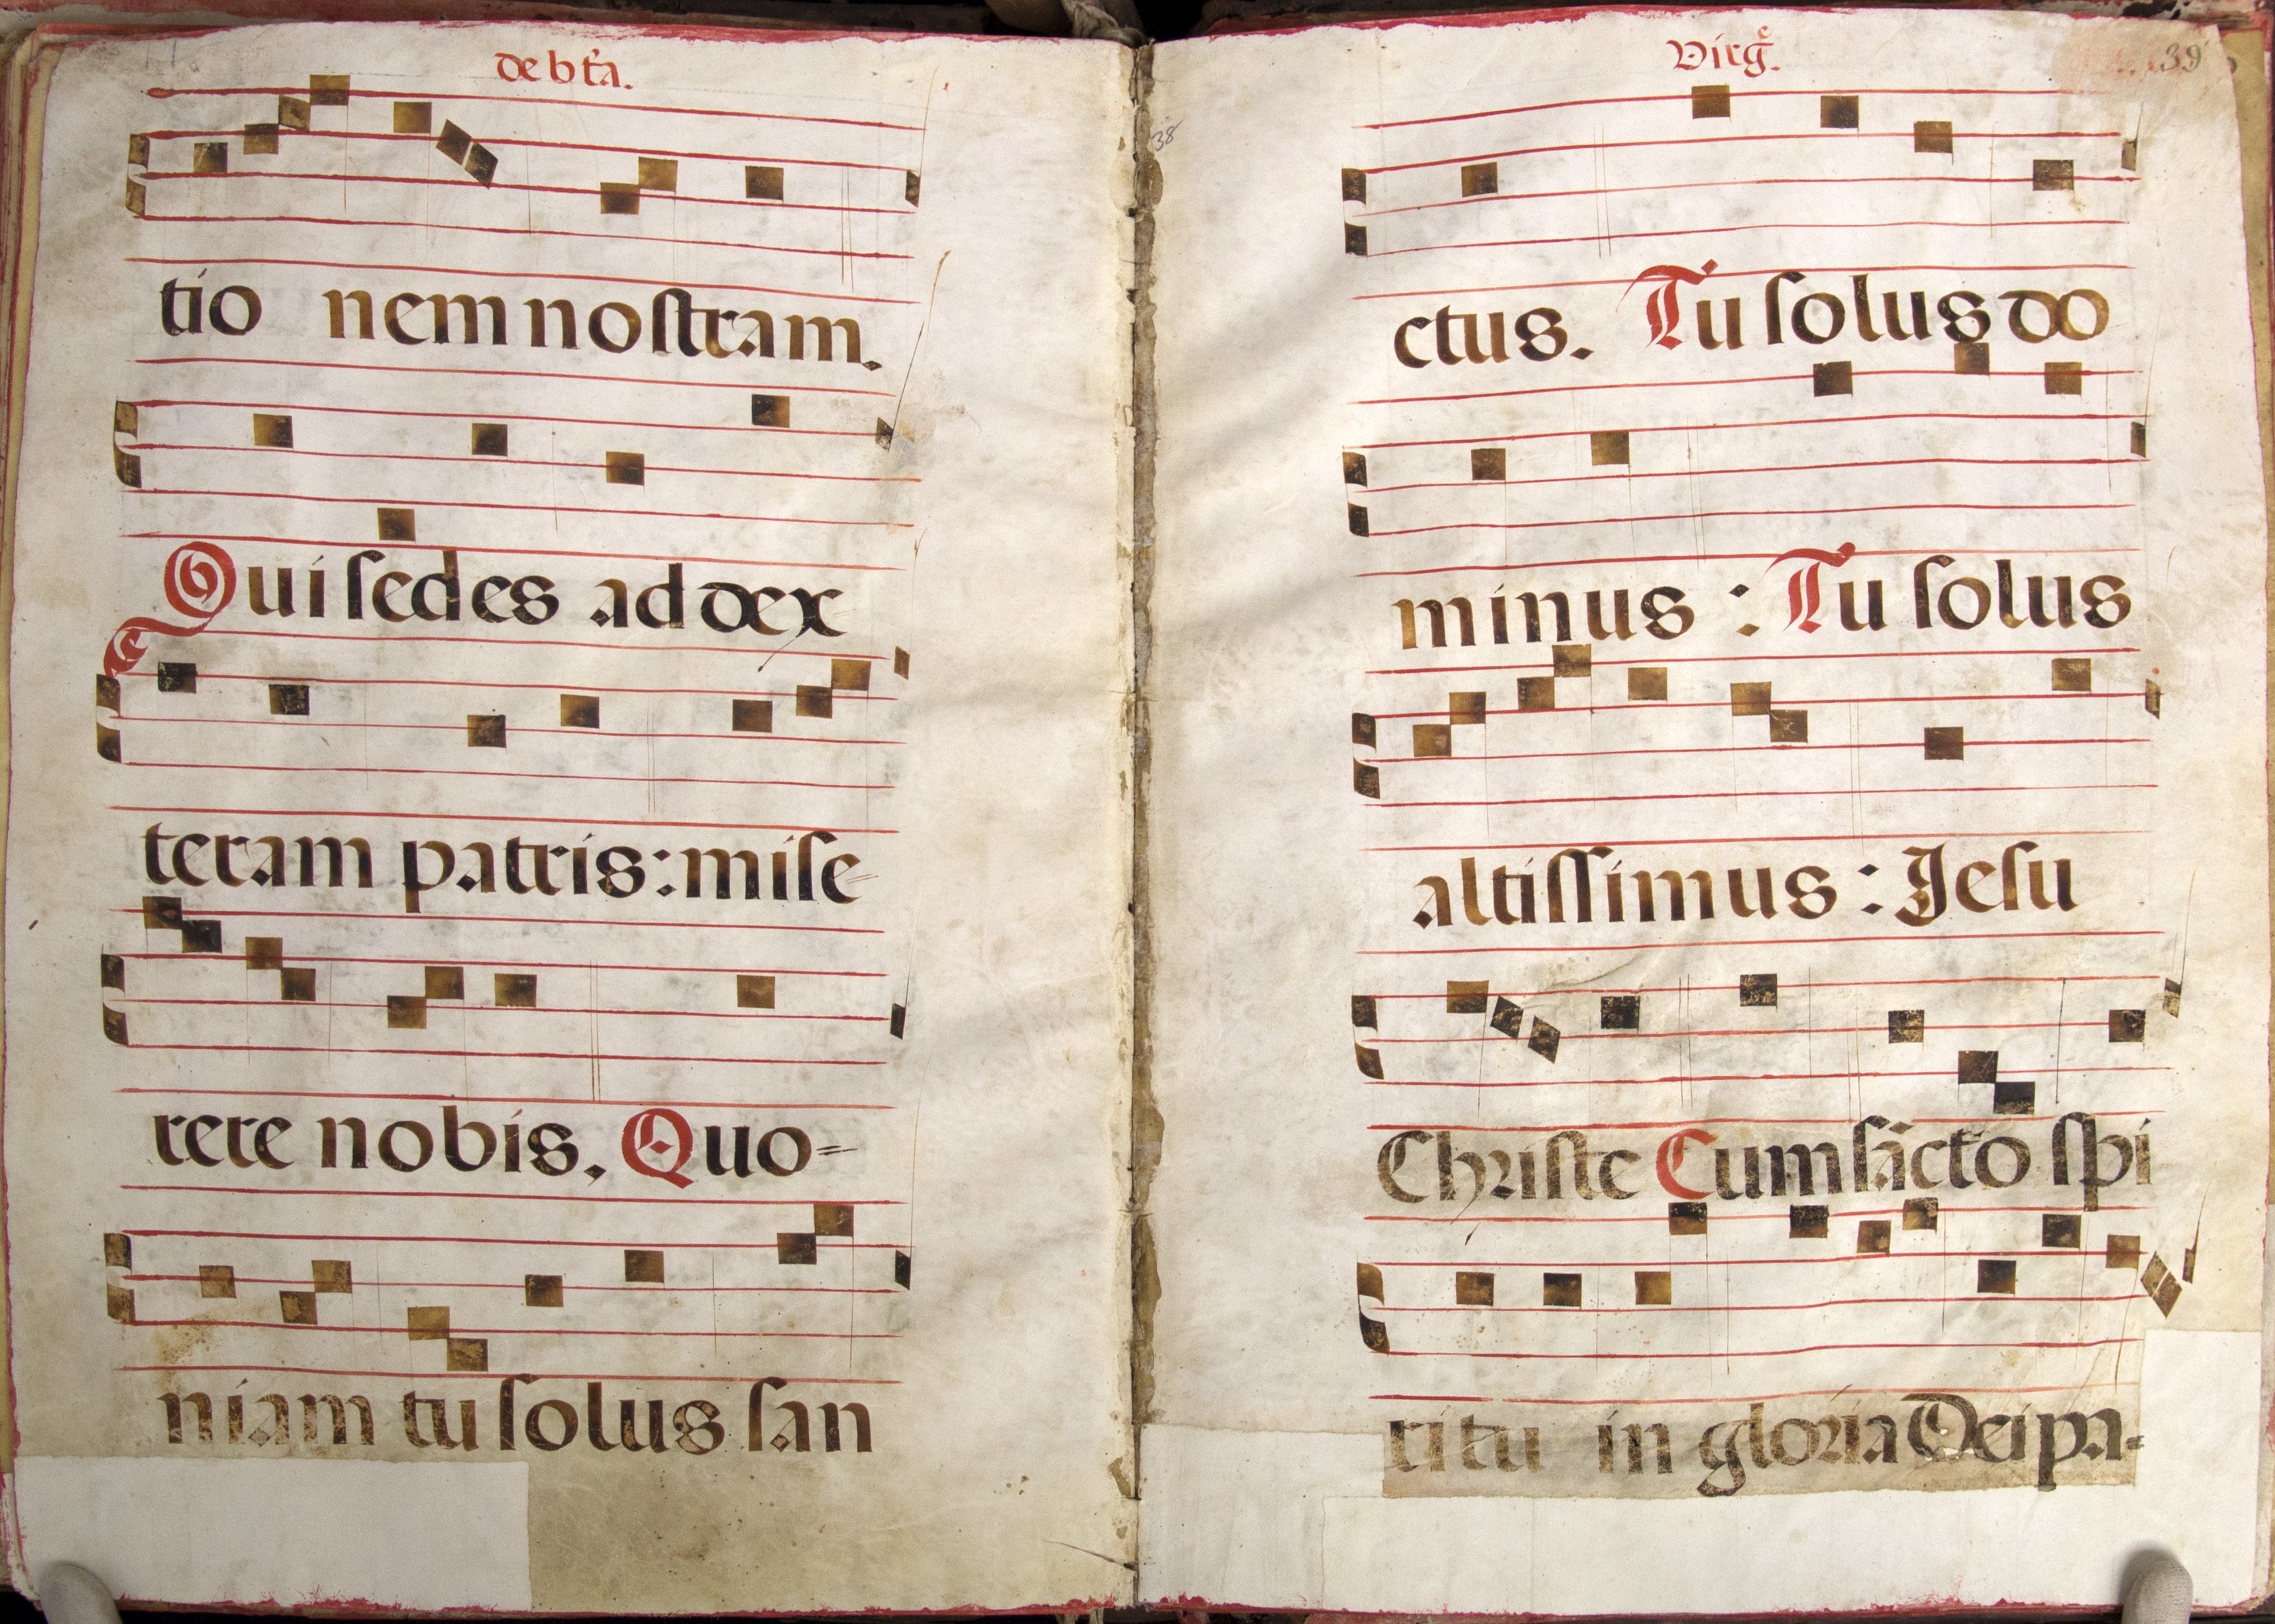 de btã.
tio nem nostram.
Qui sedes ad dex
teram patris: mise-
rere nobis. Quo=
niam tu solus san
38
Virgẽ.
39
ctus. Tu solus do
minus: Tu solus
altissimus: Jesu
Christe Cum sãcto spi
ritu in gloria Dei pa-